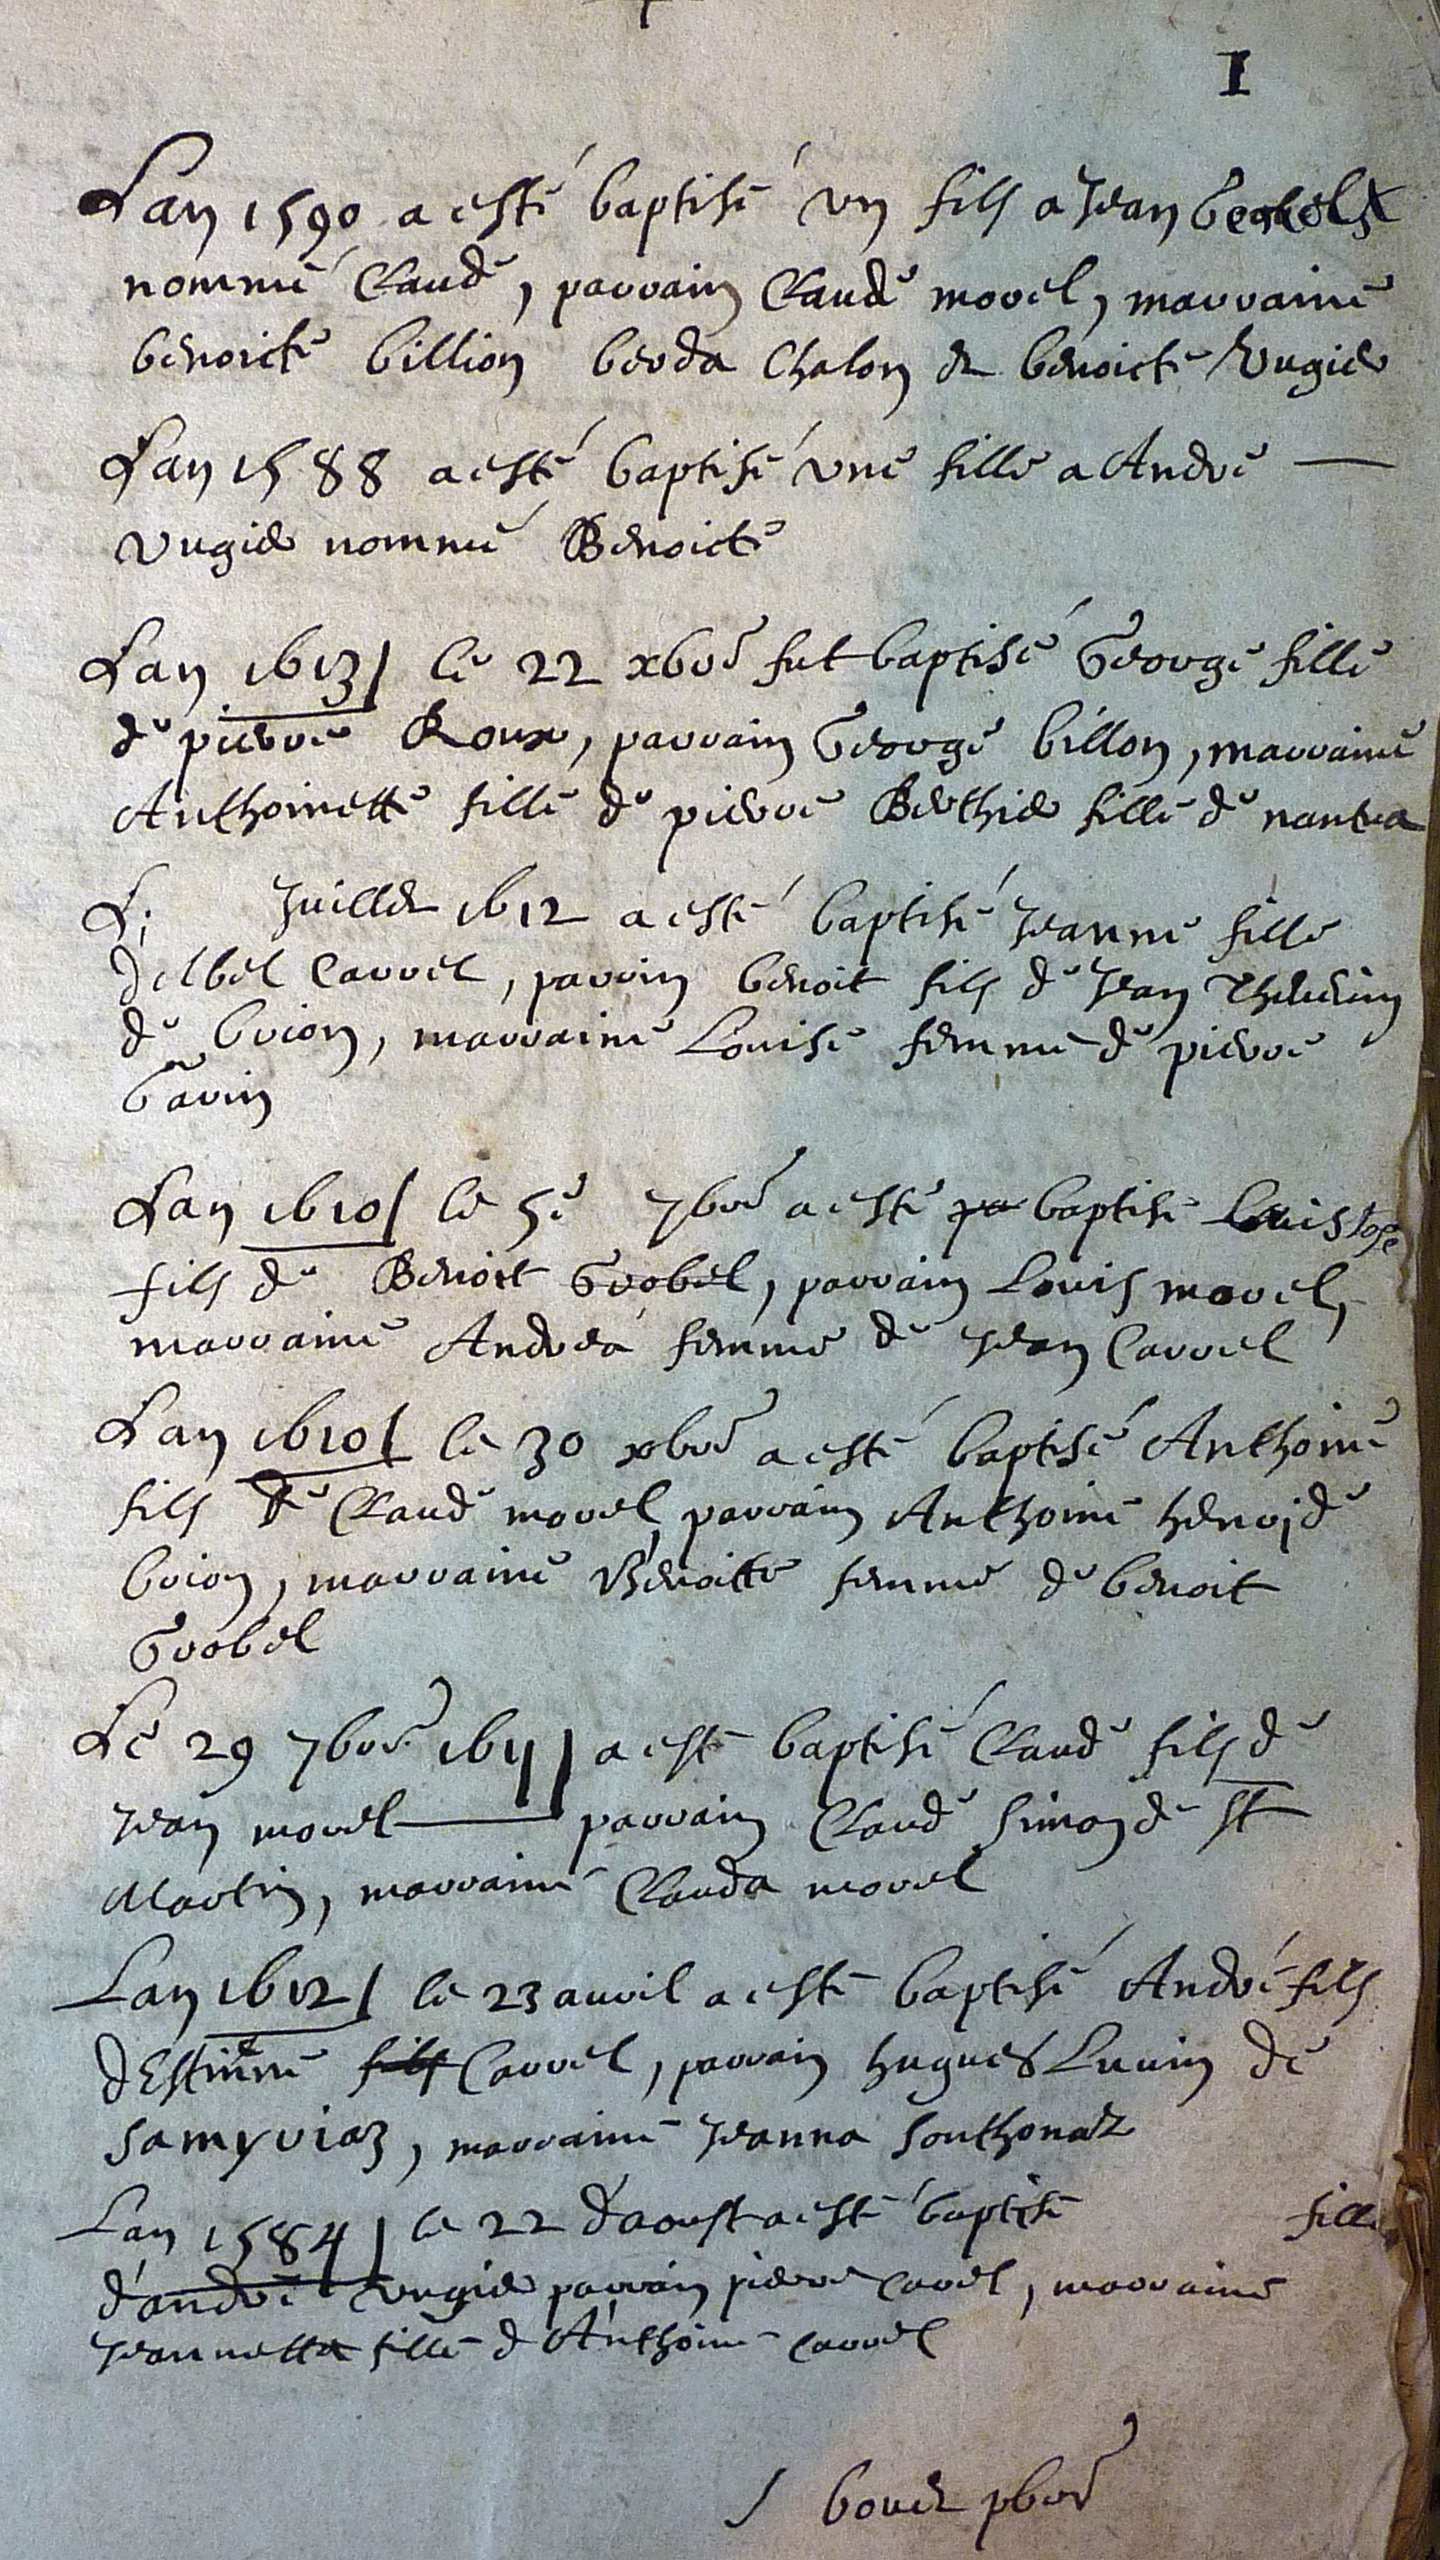 I
Lan 1590 a esté baptisé vn fils a Jean
nommé Claude, parrain Claude morel, marraine
benoicte billion berda Chalon et benoicte Vugier
Lan 1588 a esté baptisé vne fille a André —
vugier nommé Benoicte
Lan 1613 le 22 xbre fut baptisé George fille
de pierre Roux, parrain George billon, marraine
Anthoinette fille de pierre Berthier fille de nantua
Le Juillet 1612 a esté baptisé Jeanne fille
dAbel Carrel, parrin benoit fils de Jean
de brion, marraine Louise femme de pierre
Gavin
Lan 1610 le 5e 7bre a esté baptisé
fils de Benoit Grobel, parrain Louis morel,
marraine Andrea femme de Jean Carrel
Lan 1610 le 30 xbre a esté baptisé Anthoine
fils de Claude morel, parrain Anthoine henri de
brion, marraine Benoitte femme de benoit
Grobel
Le 29 7bre 1611 a esté baptisé Claude fils de
Jean morel — parrain Claude Simon de st
Martin, marraine Clauda morel
Lan 1612 le 23 auril a esté baptisé André fils
dEstienne fils Carrel, parrain hugues Luuin de
samyriaz, marraine Jeanna Southonaz
Lan 1584 le 22 daoust a esté baptisé fille
d'andré vugier parrain pierre carrel, marraine
Jeannetta fille d Anthoine carrel
J bouet pbre